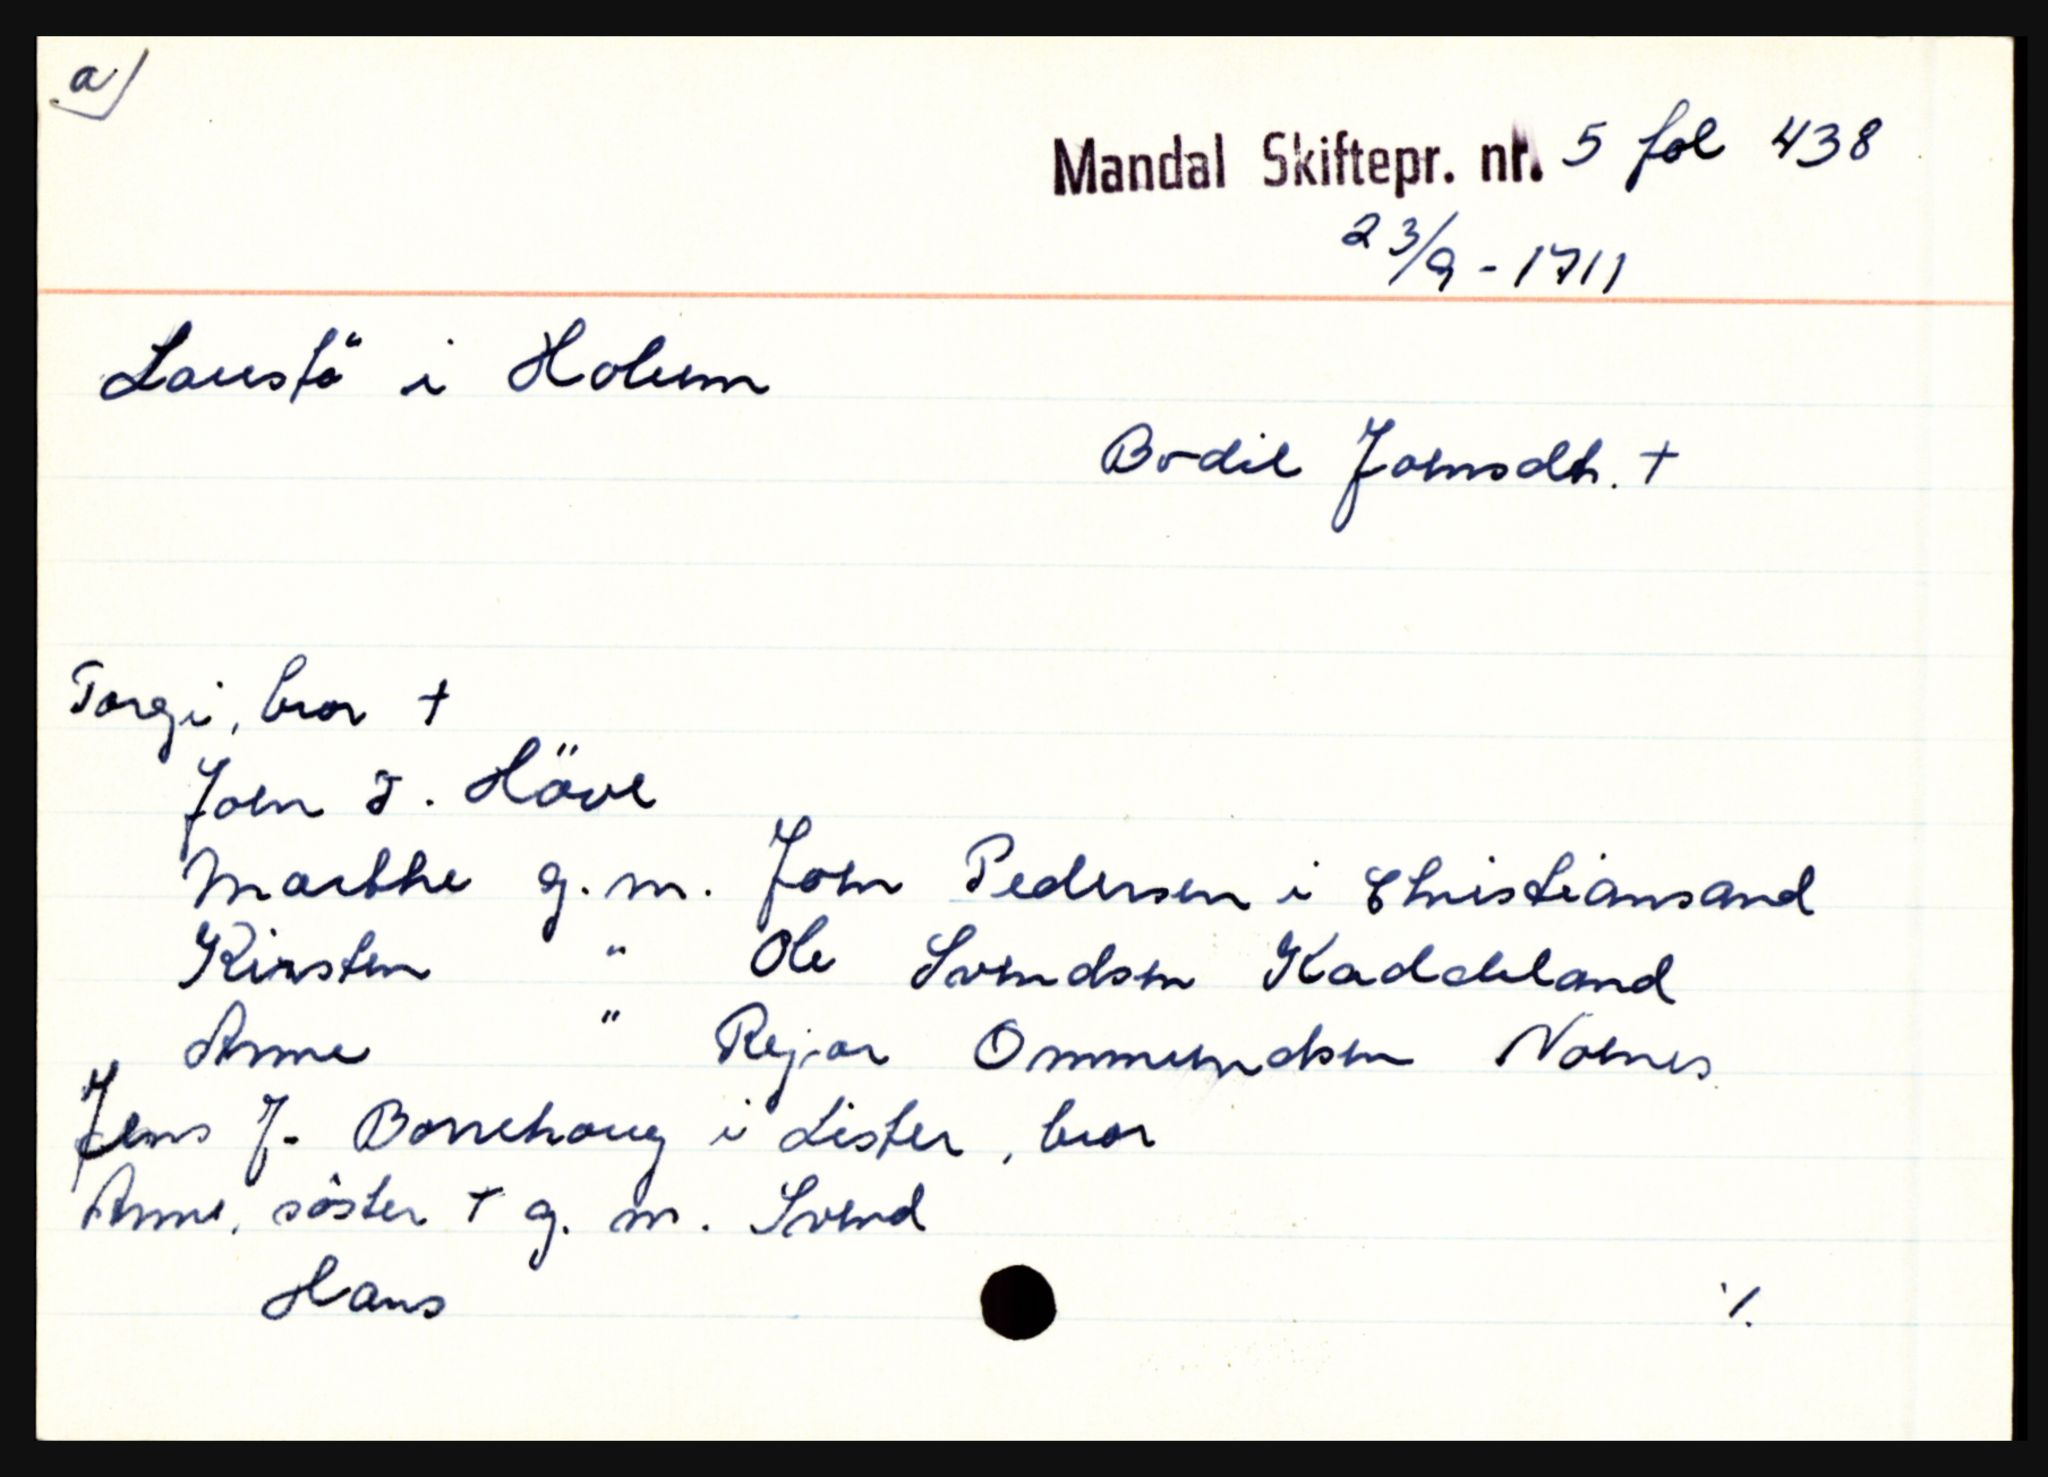 a)
Mandal Skiftepr. nr. 5 fol 438
23/9 - 1711
Laustö i Holum
Bodil Joensdtr. +
Torgi, bror +
Joen T. Höve
Marthe g. m. Joen Pedersen i Christiansand
Kirsten " Ole Svendsen Kaddeland
Anne " Rejar Ommundsen Noenes
Jens J. Borrehoug i Lister, bror
Anne, söster + g. m. Svend
Hans
·/.